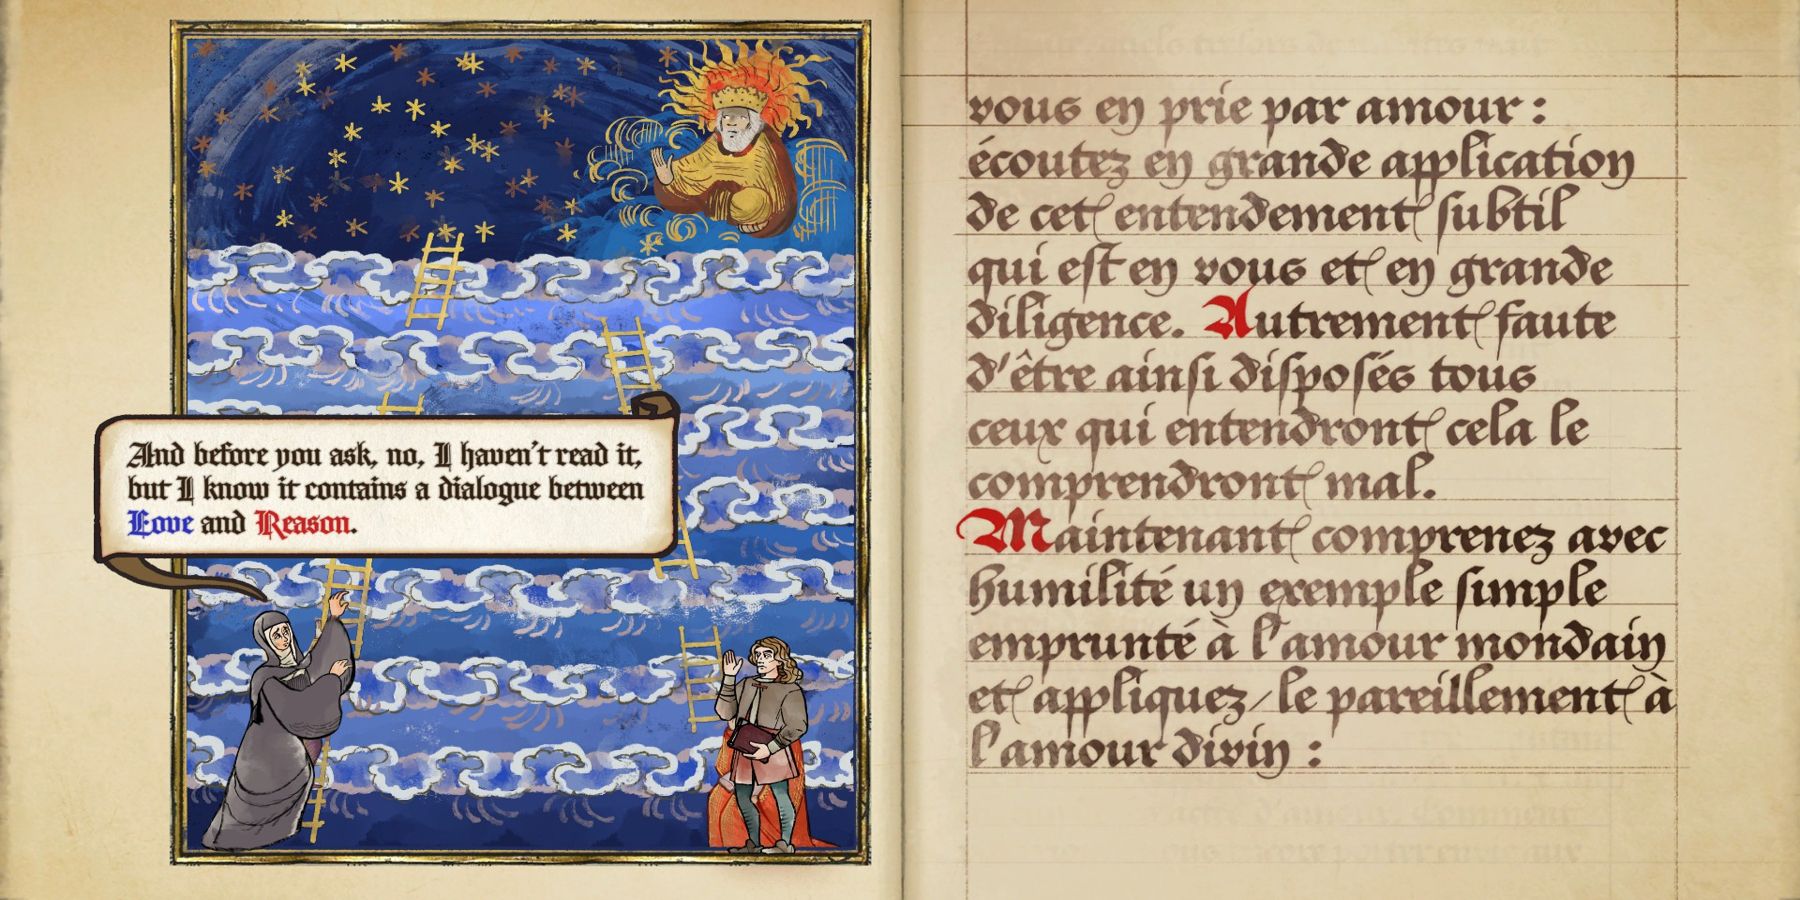 And before you ask, no, I haven't read it,
but I know it contains a dialogue between
Love and Reason.
vous en prie par amour :
écoutez en grande application
de cet entendement subtil
qui est en vous et en grande
diligence. Autrement faute
d'être ainsi disposés tous
ceux qui entendront cela le
comprendront mal.
Maintenant comprenez avec
humilité un exemple simple
emprunté à l'amour mondain
et appliquez-le pareillement à
l'amour divin :